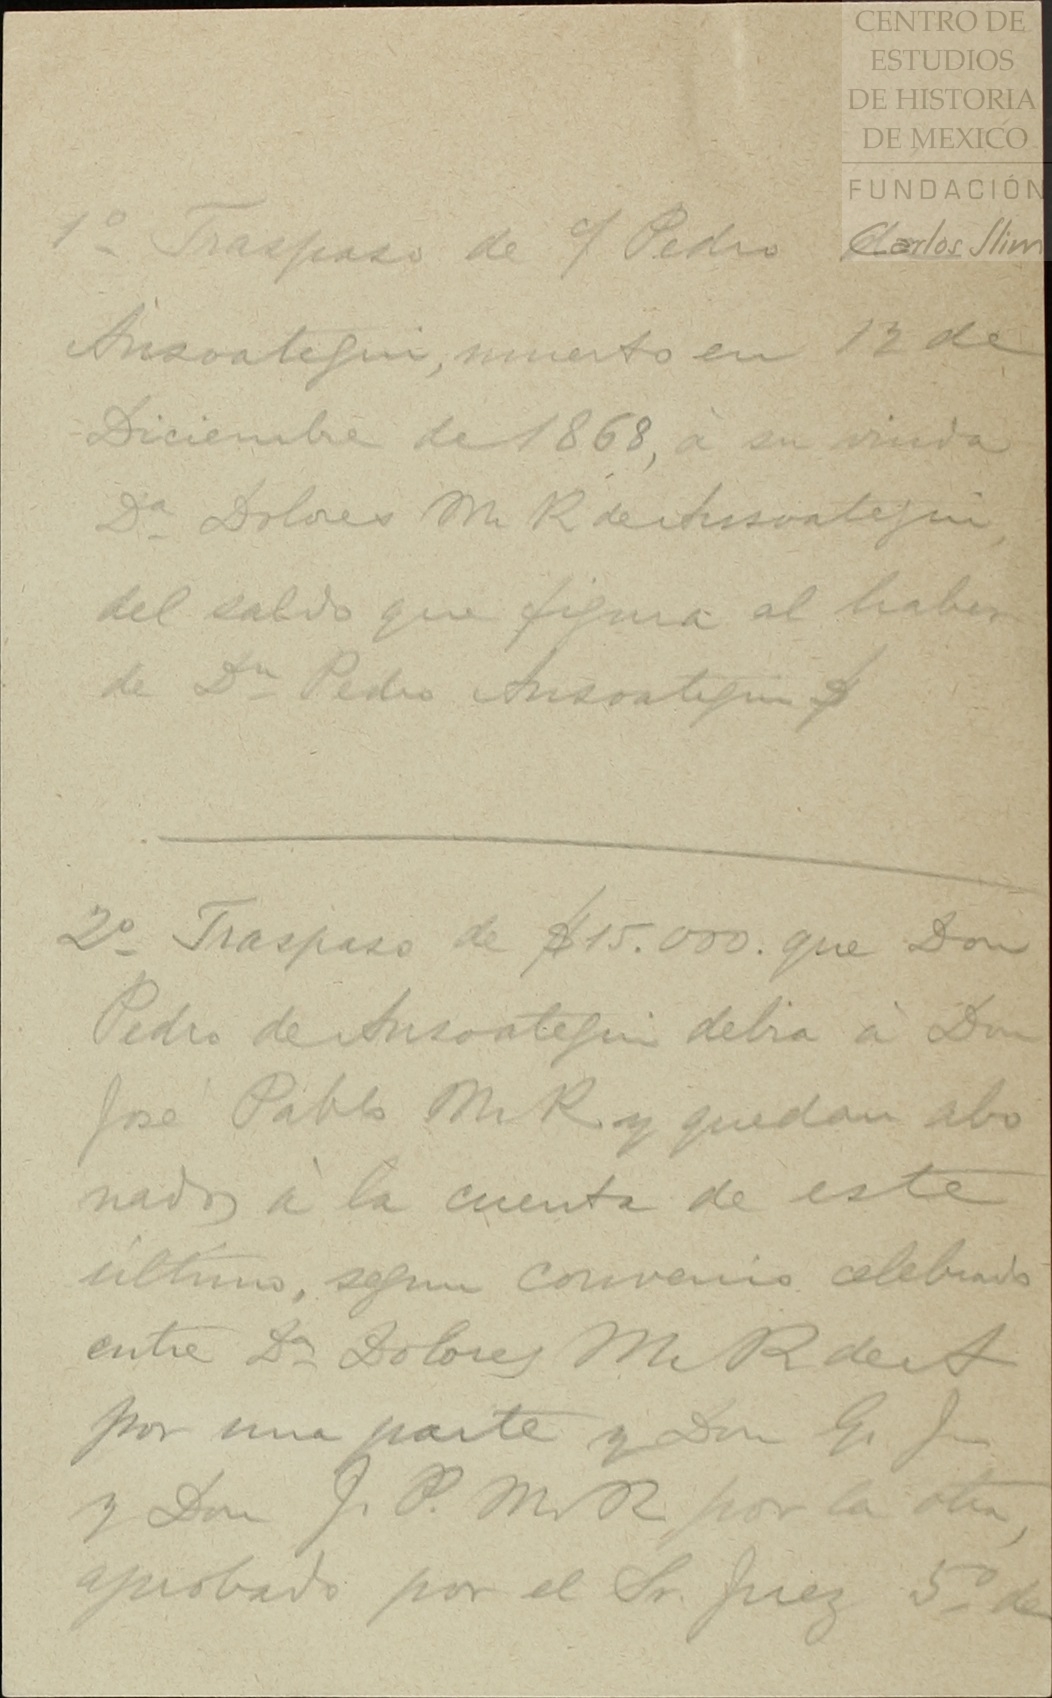 CENTRO DE
ESTUDIOS
DE HISTORIA
DE MEXICO
FUNDACIÓN
Carlos Slim
1º Traspaso de c/ Pedro
Ansoategui, muerto en 12 de
Diciembre de 1868, à su viuda
Dª Dolores M R de Ansoategui,
del saldo que figura al haber
de Dn Pedro Ansoategui $
2º Traspaso de $15.000. que Don
Pedro de Ansoategui debia à Don
José Pablo M R y quedan abo
nados à la cuenta de este
último, segun convenio celebrado
entre Dª Dolores M R de A
por una parte y Don G. J.
y Don J. P. M R por la otra,
aprobado por el Sr. Juez 5º de